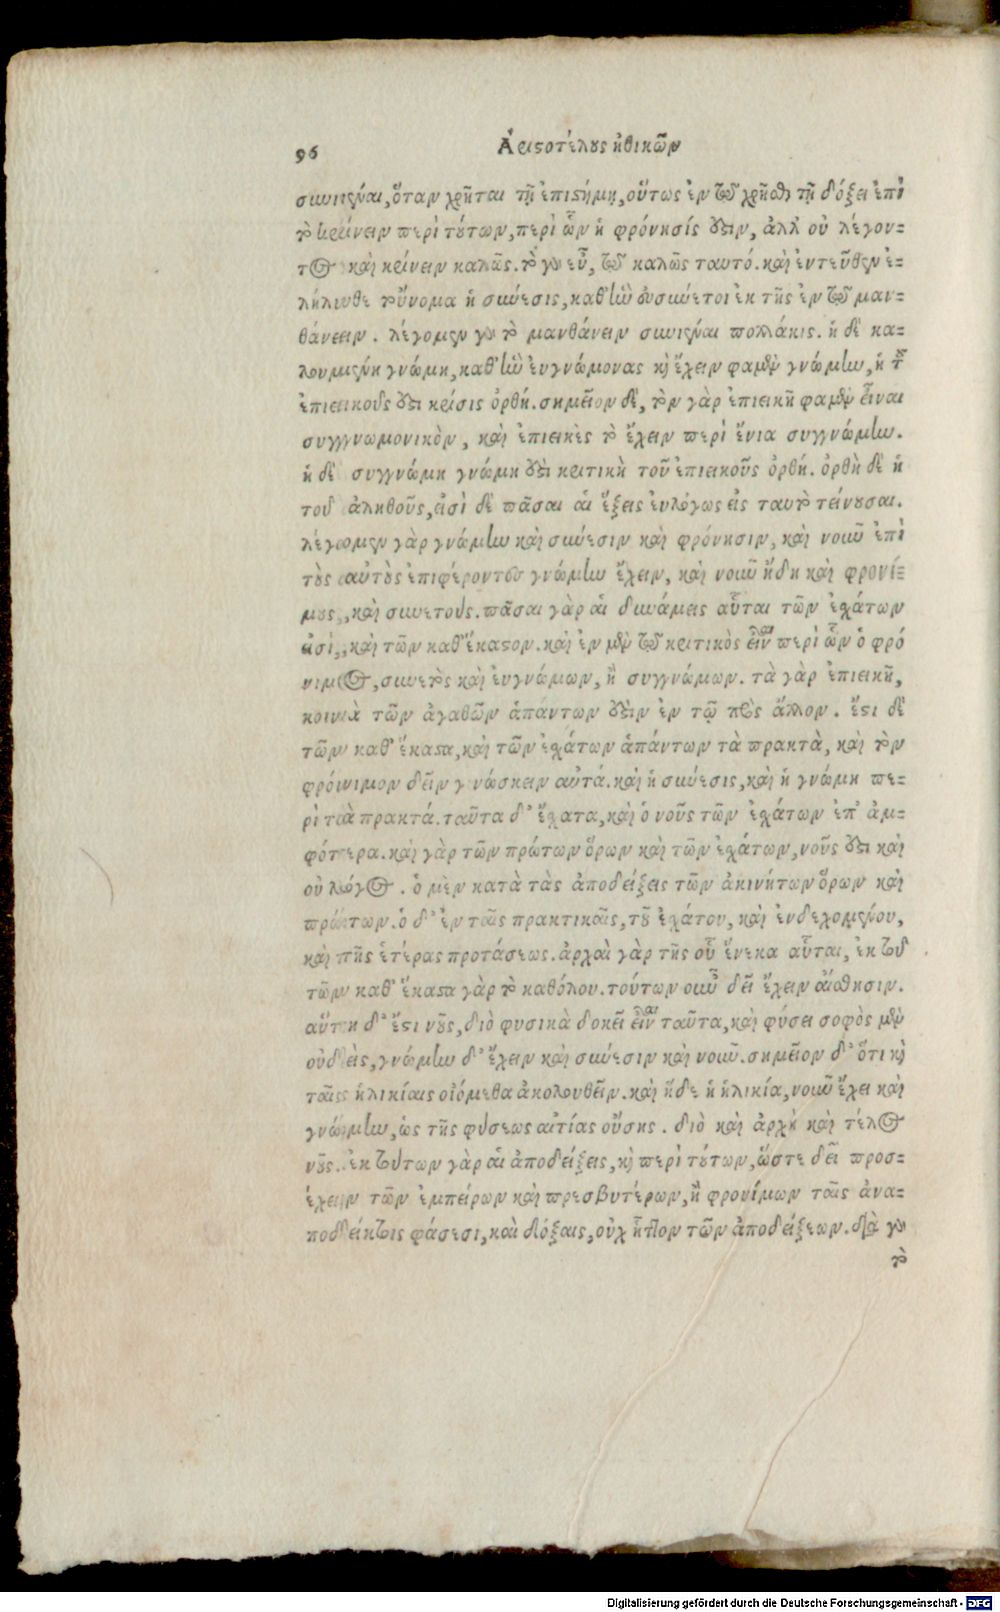 96
Ἀριστοτέλους ἠθικῶν
συνιέναι, ὅταν χρῆται τῇ ἐπιστήμῃ, οὕτως ἐν τῷ χρῆσθαι τῇ δόξει ἐπὶ
τὸ κρίνειν περὶ τούτων, περὶ ὧν ἡ φρόνησίς ἐστιν, ἀλλ' οὐ λέγον-
τος καὶ κρίνειν καλῶς. τὸ γὰρ εὖ, τῷ καλῶς ταυτό. καὶ ἐντεῦθεν ἐ-
λήλυθε τοὔνομα ἡ σύνεσις, καθ' ἣν εὐσύνετοι ἐκ τῆς ἐν τῷ μαν-
θάνειν. λέγομεν γὰρ τὸ μανθάνειν συνιέναι πολλάκις. ἡ δὲ κα-
λουμένη γνώμη, καθ' ἣν ἐυγνώμονας καὶ ἔχειν φαμὲν γνώμην, ἡ τοῦ
ἐπιεικοῦς ἐστι κρίσις ὀρθή. σημεῖον δὲ, τὸν γὰρ ἐπιεικῆ φαμὲν εἶναι
συγγνωμονικὸν, καὶ ἐπιεικὲς τὸ ἔχειν περὶ ἔνια συγγνώμην.
ἡ δὲ συγγνώμη γνώμη ἐστὶ κριτικὴ τοῦ ἐπιεικοῦς ὀρθή. ὀρθὴ δὲ ἡ
τοῦ ἀληθοῦς, εἰσὶ δὲ πᾶσαι αἱ ἕξεις ἐυλόγως εἰς ταυτὸ τείνουσαι.
λέγομεν γὰρ γνώμην καὶ σύνεσιν καὶ φρόνησιν, καὶ νοῦν ἐπὶ
τοὺς αὐτοὺς ἐπιφέροντες γνώμην ἔχειν, καὶ νοῦν ἤδη καὶ φρονί-
μους, καὶ συνετούς. πᾶσαι γὰρ αἱ δυνάμεις αὗται τῶν ἐσχάτων
εἰσὶ, καὶ τῶν καθ' ἕκαστον. καὶ ἐν μὲν τῷ κριτικὸς εἶναι περὶ ὧν ὁ φρό
νιμος, συνετὸς καὶ ἐυγνώμων, ἢ συγγνώμων. τὰ γὰρ ἐπιεικῆ,
κοινὰ τῶν ἀγαθῶν ἁπάντων ἐστὶν ἐν τῷ πρὸς ἄλλον. ἔστι δὲ
τῶν καθ' ἕκαστα, καὶ τῶν ἐσχάτων ἁπάντων τὰ πρακτὰ, καὶ τὸν
φρόνιμον δεῖν γινώσκειν αὐτά. καὶ ἡ σύνεσις, καὶ ἡ γνώμη πε-
ρὶ τὰ πρακτά. ταῦτα δ' ἔσχατα, καὶ ὁ νοῦς τῶν ἐσχάτων ἐπ' ἀμ-
φότερα. καὶ γὰρ τῶν πρώτων ὅρων καὶ τῶν ἐσχάτων, νοῦς ἐστι καὶ
οὐ λόγος. ὁ μὲν κατὰ τὰς ἀποδείξεις τῶν ἀκινήτων ὅρων καὶ
πρώτων. ὁ δ' ἐν ταῖς πρακτικαῖς, τοῦ ἐσχάτου, καὶ ἐνδεχομένου,
καὶ τῆς ἑτέρας προτάσεως. ἀρχαὶ γὰρ τῆς οὗ ἕνεκα αὗται, ἐκ τοῦ
τῶν καθ' ἕκαστα γὰρ τὸ καθόλου. τούτων οὖν δεῖ ἔχειν αἴσθησιν.
αὕτη δ' ἔστι νοῦς, διὸ φυσικὰ δοκεῖ εἶναι ταῦτα, καὶ φύσει σοφὸς μὲν
οὐδεὶς, γνώμην δ' ἔχειν καὶ σύνεσιν καὶ νοῦν. σημεῖον δ' ὅτι καὶ
ταῖς ἡλικίαις οἰόμεθα ἀκολουθεῖν. καὶ ἥδε ἡ ἡλικία, νοῦν ἔχει καὶ
γνώμην, ὡς τῆς φύσεως αἰτίας οὔσης. διὸ καὶ ἀρχὴ καὶ τέλος
νοῦς. ἐκ τούτων γὰρ αἱ ἀποδείξεις, καὶ περὶ τούτων, ὥστε δεῖ προσ-
έχειν τῶν ἐμπείρων καὶ πρεσβυτέρων, ἢ φρονίμων ταῖς ἀνα-
ποδείκτοις φάσεσι, καὶ δόξαις, οὐχ ἧττον τῶν ἀποδείξεων. διὰ γὰρ
τὸ
Digitalisierung gefördert durch die Deutsche Forschungsgemeinschaft - DFG